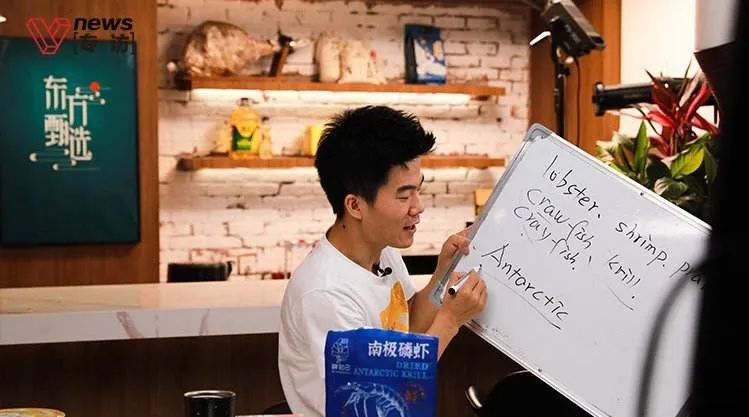 news
[专访]
东方
甄选
lobster、shrimp、
crawfish、krill
crayfish.
Antarctic
南极磷虾
DRIED
ANTARCTIC KRILL